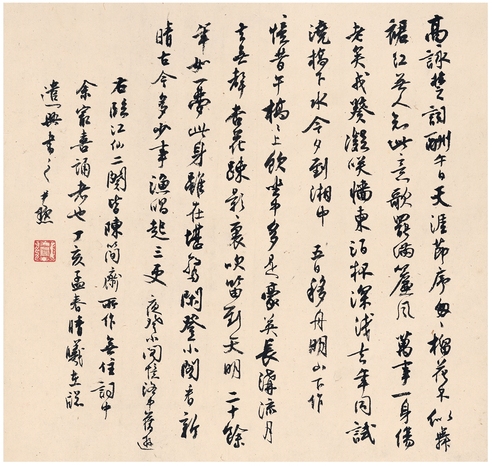 高詠楚詞酬午日天涯節序匆々榴花不似舞
裙紅無人知此意歌罷滿簾風 萬事一身傷
老矣戎葵凝笑牆東酒杯深淺去年同試
澆橋下水今夕到湘中 五日移舟明山下作
憶昔午橋々上飲坐中多是豪英長溝流月
去無聲杏花疎影裏吹笛到天明 二十餘
年如一夢此身雖在堪驚閑登小閣看新
晴古今多少事漁唱起三更 夜登小閣憶洛中舊遊
右臨江仙二闋皆陳簡齋所作無住詞中
余最喜誦者也 丁亥孟春晴曦在牖
遣興書之 尹默